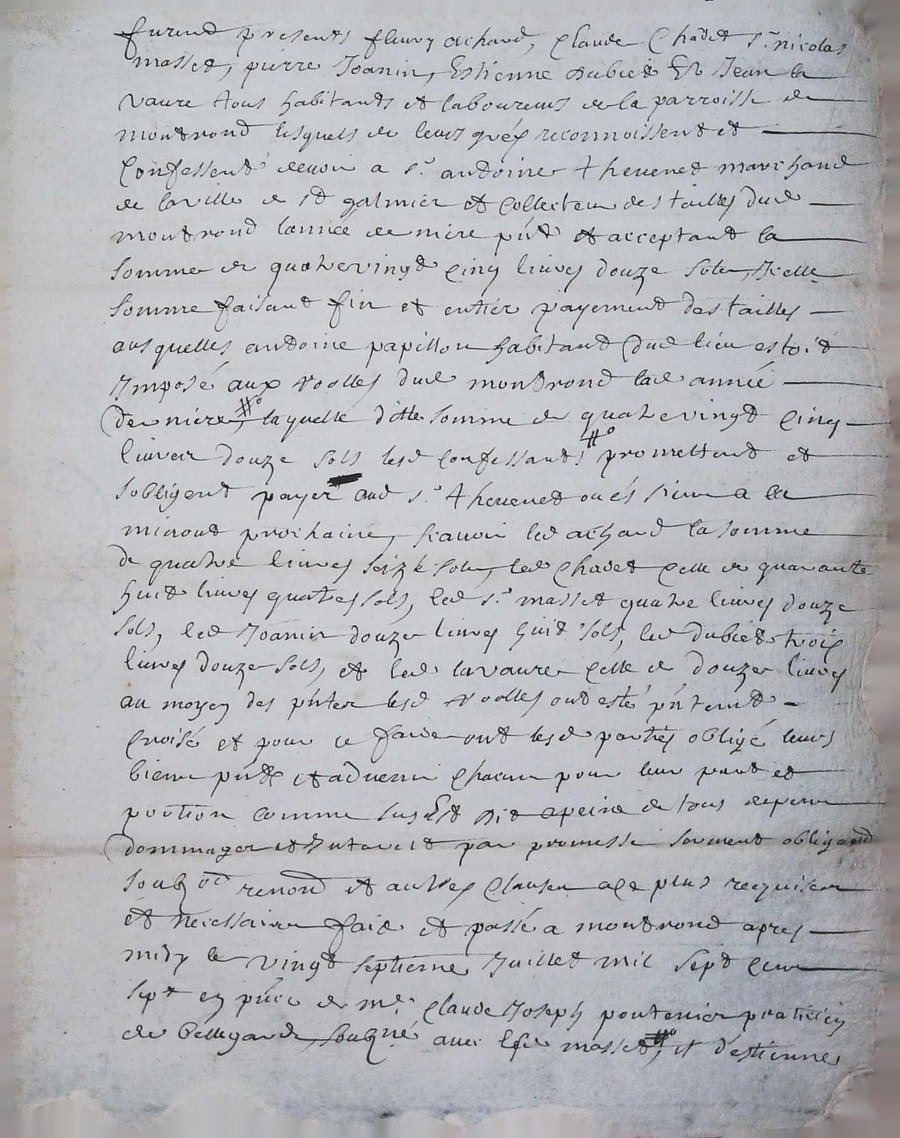 furent presents fleury achard, Claude Chadet sr. nicolas
masset, pierre Joanin, Estienne dubiet Et Jean la
vaure tous habitants et laboureurs de la parroisse de
montrond lesquels de leurs gréz reconnoissent et
Confessent devoir a sr. andoine Thevenet marchand
de la ville de st galmier et Collecteur des tailles dud
montrond lannée derniere pnt et acceptant la
somme de quatrevingt cinq livres douze sols, Icelle
somme faisant fin et entier payement des tailles
ausquelles andoine papillon habitant dud lieu estoit
Imposé aux roolles dud montrond lad année
derniere, laquelle ditte somme de quatrevingt cinq
livres douze sols lesd confessants promettent et
sobligent payer aud sr. Thevenet ou és siens a la
mioust prochaine, scavoir led achard la somme
de quatre livres seize sols, led Chadet celle de quarante
huit livres quatres sols, led sr. masset quatre livres douze
sols, led Joanin douze livres huit sols, led dubiet trois
livres douze sols, et led lavaure celle de douze livres
au moyen des pntes lesd roolles ont esté pntemt
croisé et pour ce faire ont lesd parties obligé leurs
biens pnts et advenir chacun pour leur part et
portion comme sus Est dit a peine de tous despens
dommages et Interets par promesse serment obligaon
soubz on renond et autres clauses a ce plus requises
et necessaires fait et passé a montrond apres
midy le vingt septieme Juillet mil sept cens
sept en pnce de me. Claude Joseph pontenier praticien
de bellegarde soubzné avec led masset, et destienne